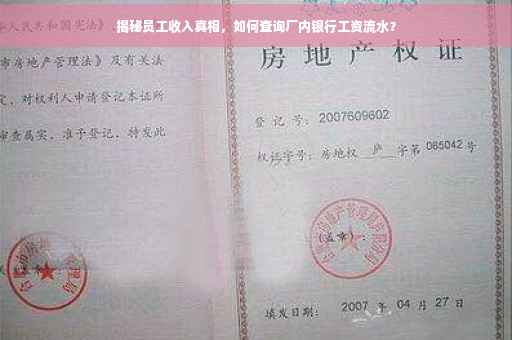 揭秘员工收入真相，如何查询厂内银行工资流水？
人民共和国宪法》及
市房地产管理法》及有关法
定，对权利人申请登记本证所
审查属实，准予登记，特发此
房地产权证
登记号：2007609602
权证字号：房地权 庐 字第 085042 号
(盖章)：
填发日期：2007 年 04 月 27 日